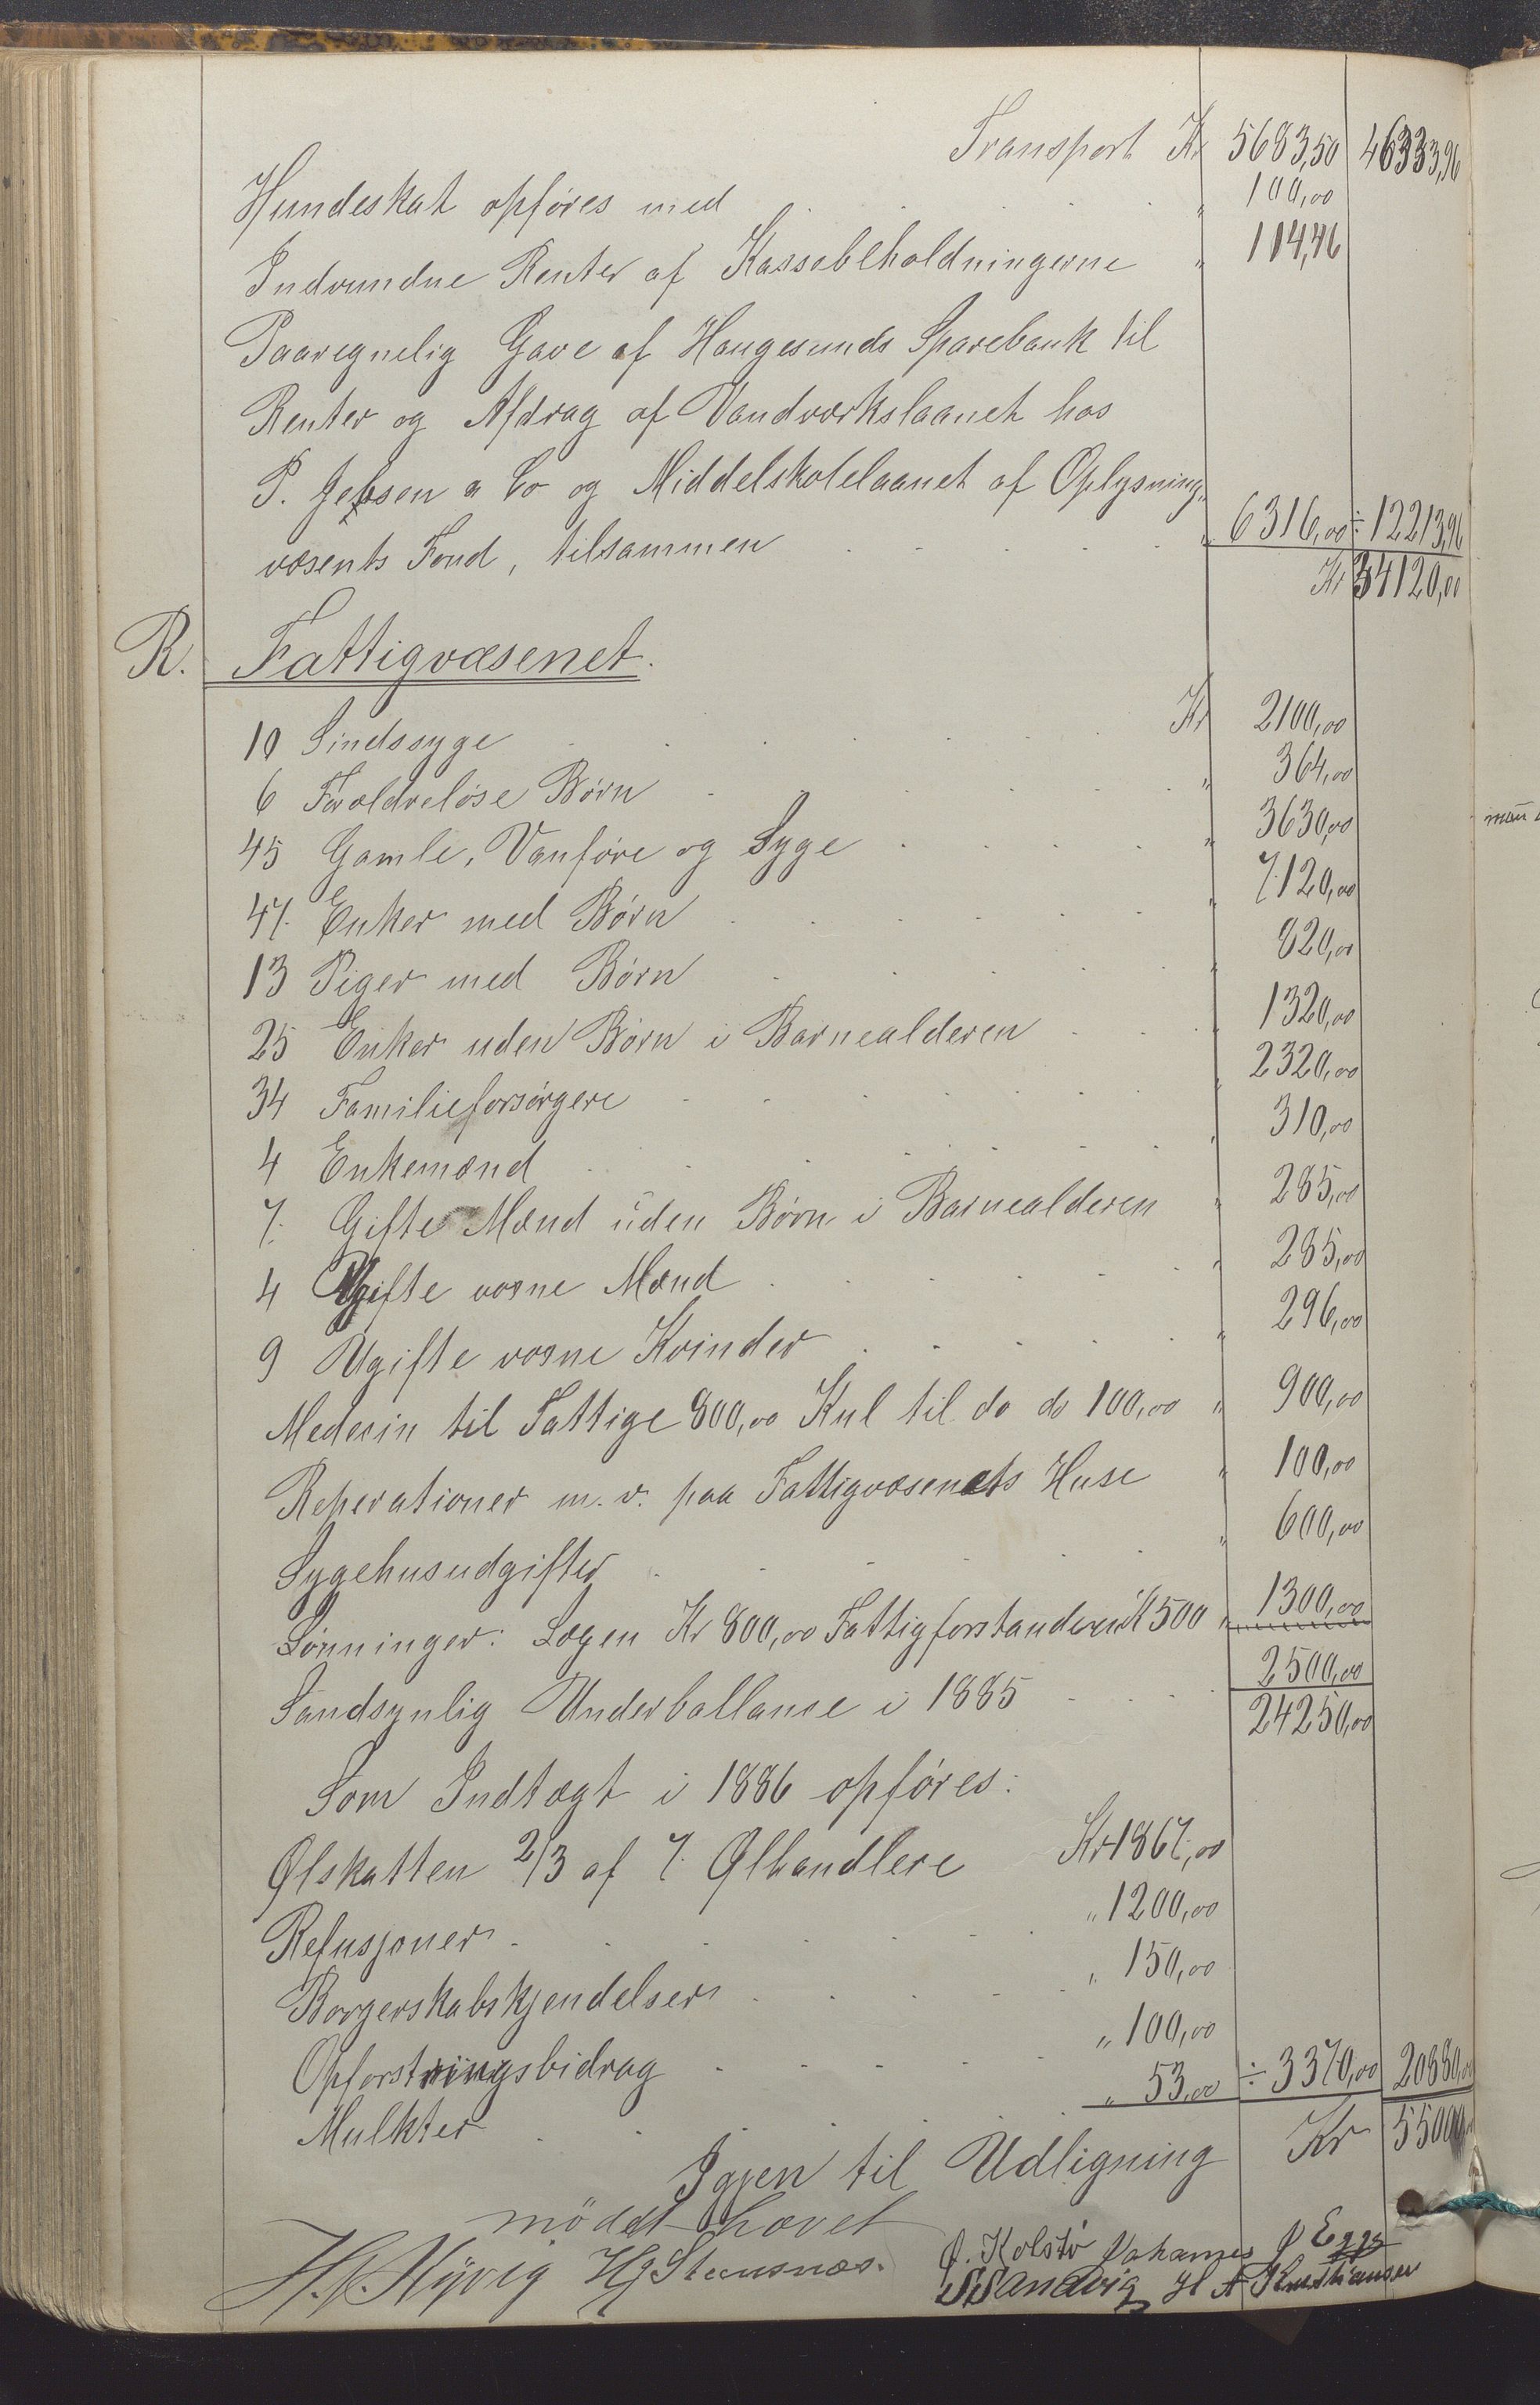 Transport Kr 5683,50 46333,96
Hundeskat opføres med " 100,00
Indvundne Renter af Kassebeholdningerne " 114,46
Paaregnelig Gave af Haugesunds Sparebank til
Renter og Afdrag af Vandværkslaanet hos
P. Jebsen a Co og Middelskolelaanet af Oplysnings
væsents Fond, tilsammen " 6316,00 ÷ 12213,96
Kr 34120,00
R. Fattigvæsenet.
10 Sindssyge Kr 2100,00
6 Forældreløse Børn " 364,00
45 Gamle, Vanføre og Syge " 3630,00
47 Enker med Børn " 7120,00
13 Piger med Børn " 820,00
25 Enker uden Børn i Barnealderen " 1320,00
34 Familieforsørgere " 2320,00
4 Enkemænd " 310,00
7 Gifte Mænd uden Børn i Barnealderen " 285,00
4 Ugifte voxne Mænd " 285,00
9 Ugifte voxne Kvinder " 296,00
Medesin til Fattige 800,00 Kul til do do 100,00 " 900,00
Reperationer m. v. paa Fattigvæsenets Huse " 100,00
Sygehusudgifter " 600,00
Lønninger: Lægen Kr 800,00 Fattigforstanderen Kr 500 " 1300,00
Sandsynlig Underballanse i 1885 2500,00
24250,00
Som Indtægt i 1886 opføres:
Ølskatten 2/3 af 7 Ølhandlere Kr 1867,00
Refusjoner " 1200,00
Borgerskabskjendelser " 150,00
Opfostringsbidrag " 100,00
Mulkter " 53,00 ÷ 3370,00 20880,00
Igjen til Udligning Kr 55000
mödet hævet
H. Steensnæs. O. Kolstö Johannes
S Sandvig H A Kristiansen